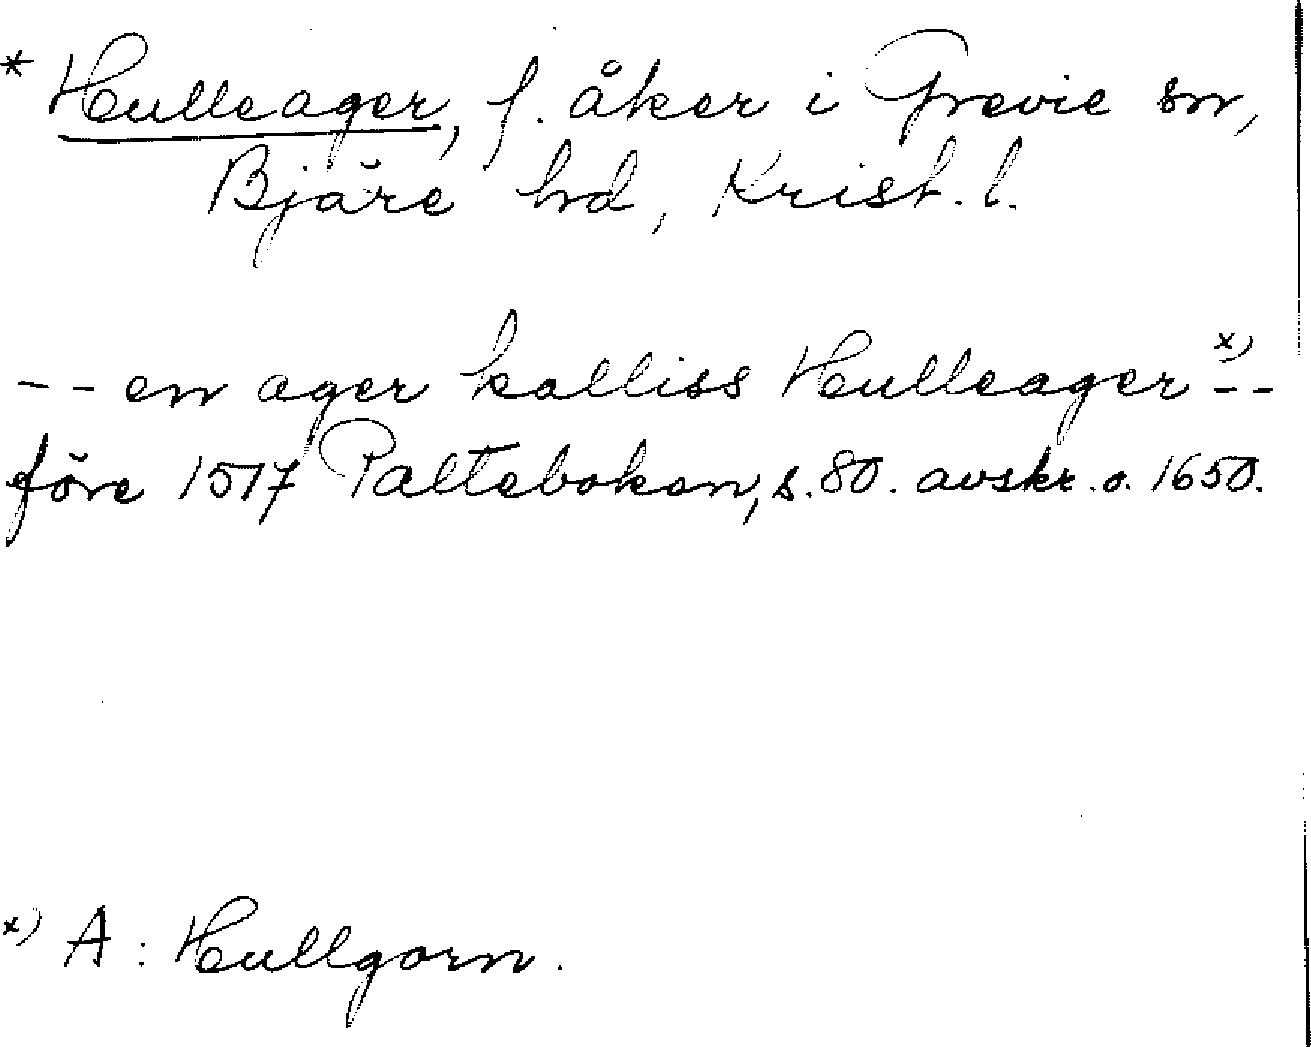 * Hulleager, f. åker i Grevie sn,
Bjäre hd, Krist. l.
-- en ager kalliss Hulleager x) --
före 1517 Palteboken, s. 80. avskr. o. 1650.
x) A : Hullgorn.